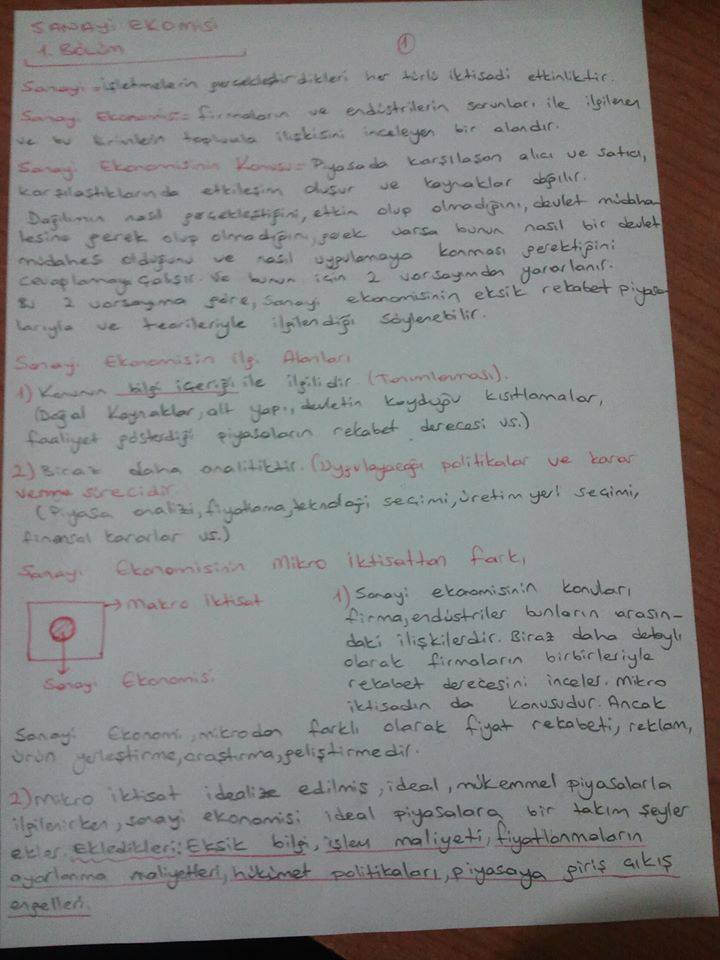 SANAYİ EKOMİSİ
1. BÖLÜM
1
Sanayi = işletmelerin gerçekleştirdikleri her türlü iktisadi etkinliktir.
Sanayi Ekonomisi = firmaların ve endüstrilerin sorunları ile ilgilenen
ve bu birimlerin toplumla ilişkisini inceleyen bir alandır.
Sanayi Ekonomisinin Konusu = Piyasada karşılaşan alıcı ve satıcı,
karşılaştıklarında etkileşim oluşur ve kaynaklar dağılır.
Dağılımın nasıl gerçekleştiğini, etkin olup olmadığını, devlet müdaha
lesine gerek olup olmadığını, gerek varsa bunun nasıl bir devlet
müdahes olduğunu ve nasıl uygulamaya konması gerektiğini
cevaplamaya çalışır. Ve bunun için 2 varsayımdan yararlanır.
Bu 2 varsayıma göre, sanayi ekonomisinin eksik rekabet piyasa
larıyla ve teorileriyle ilgilendiği söylenebilir.
Sanayi Ekonomisin ilgi Alanları
1) Konunun bilgi içeriği ile ilgilidir (Tanımlaması).
(Doğal Kaynaklar, alt yapı, devletin koyduğu kısıtlamalar,
faaliyet gösterdiği piyasaların rekabet derecesi vs.)
2) Biraz daha analitiktir. (Uygulayacağı politikalar ve karar
verme sürecidir
(Piyasa analizi, fiyatlama, teknoloji seçimi, üretim yeri seçimi,
finansal kararlar vs.)
Sanayi Ekonomisinin Mikro iktisattan farkı
→ Makro iktisat
Sanayi Ekonomisi
1) Sanayi ekonomisinin konuları
firma, endüstriler bunların arasın-
daki ilişkilerdir. Biraz daha detaylı
olarak firmaların birbirleriyle
rekabet derecesini inceler. Mikro
iktisadın da konusudur. Ancak
Sanayi Ekonomi, mikrodan farklı olarak fiyat rekabeti, reklam,
ürün yerleştirme, araştırma, geliştirmedir.
2) Mikro iktisat idealize edilmiş, ideal, mükemmel piyasalarla
ilgilenirken, sanayi ekonomisi ideal piyasalara bir takım şeyler
ekler. Ekledikleri: Eksik bilgi, işlem maliyeti, fiyatlanmaların
ayarlanma maliyetleri, hükümet politikaları, piyasaya giriş çıkış
engelleri.